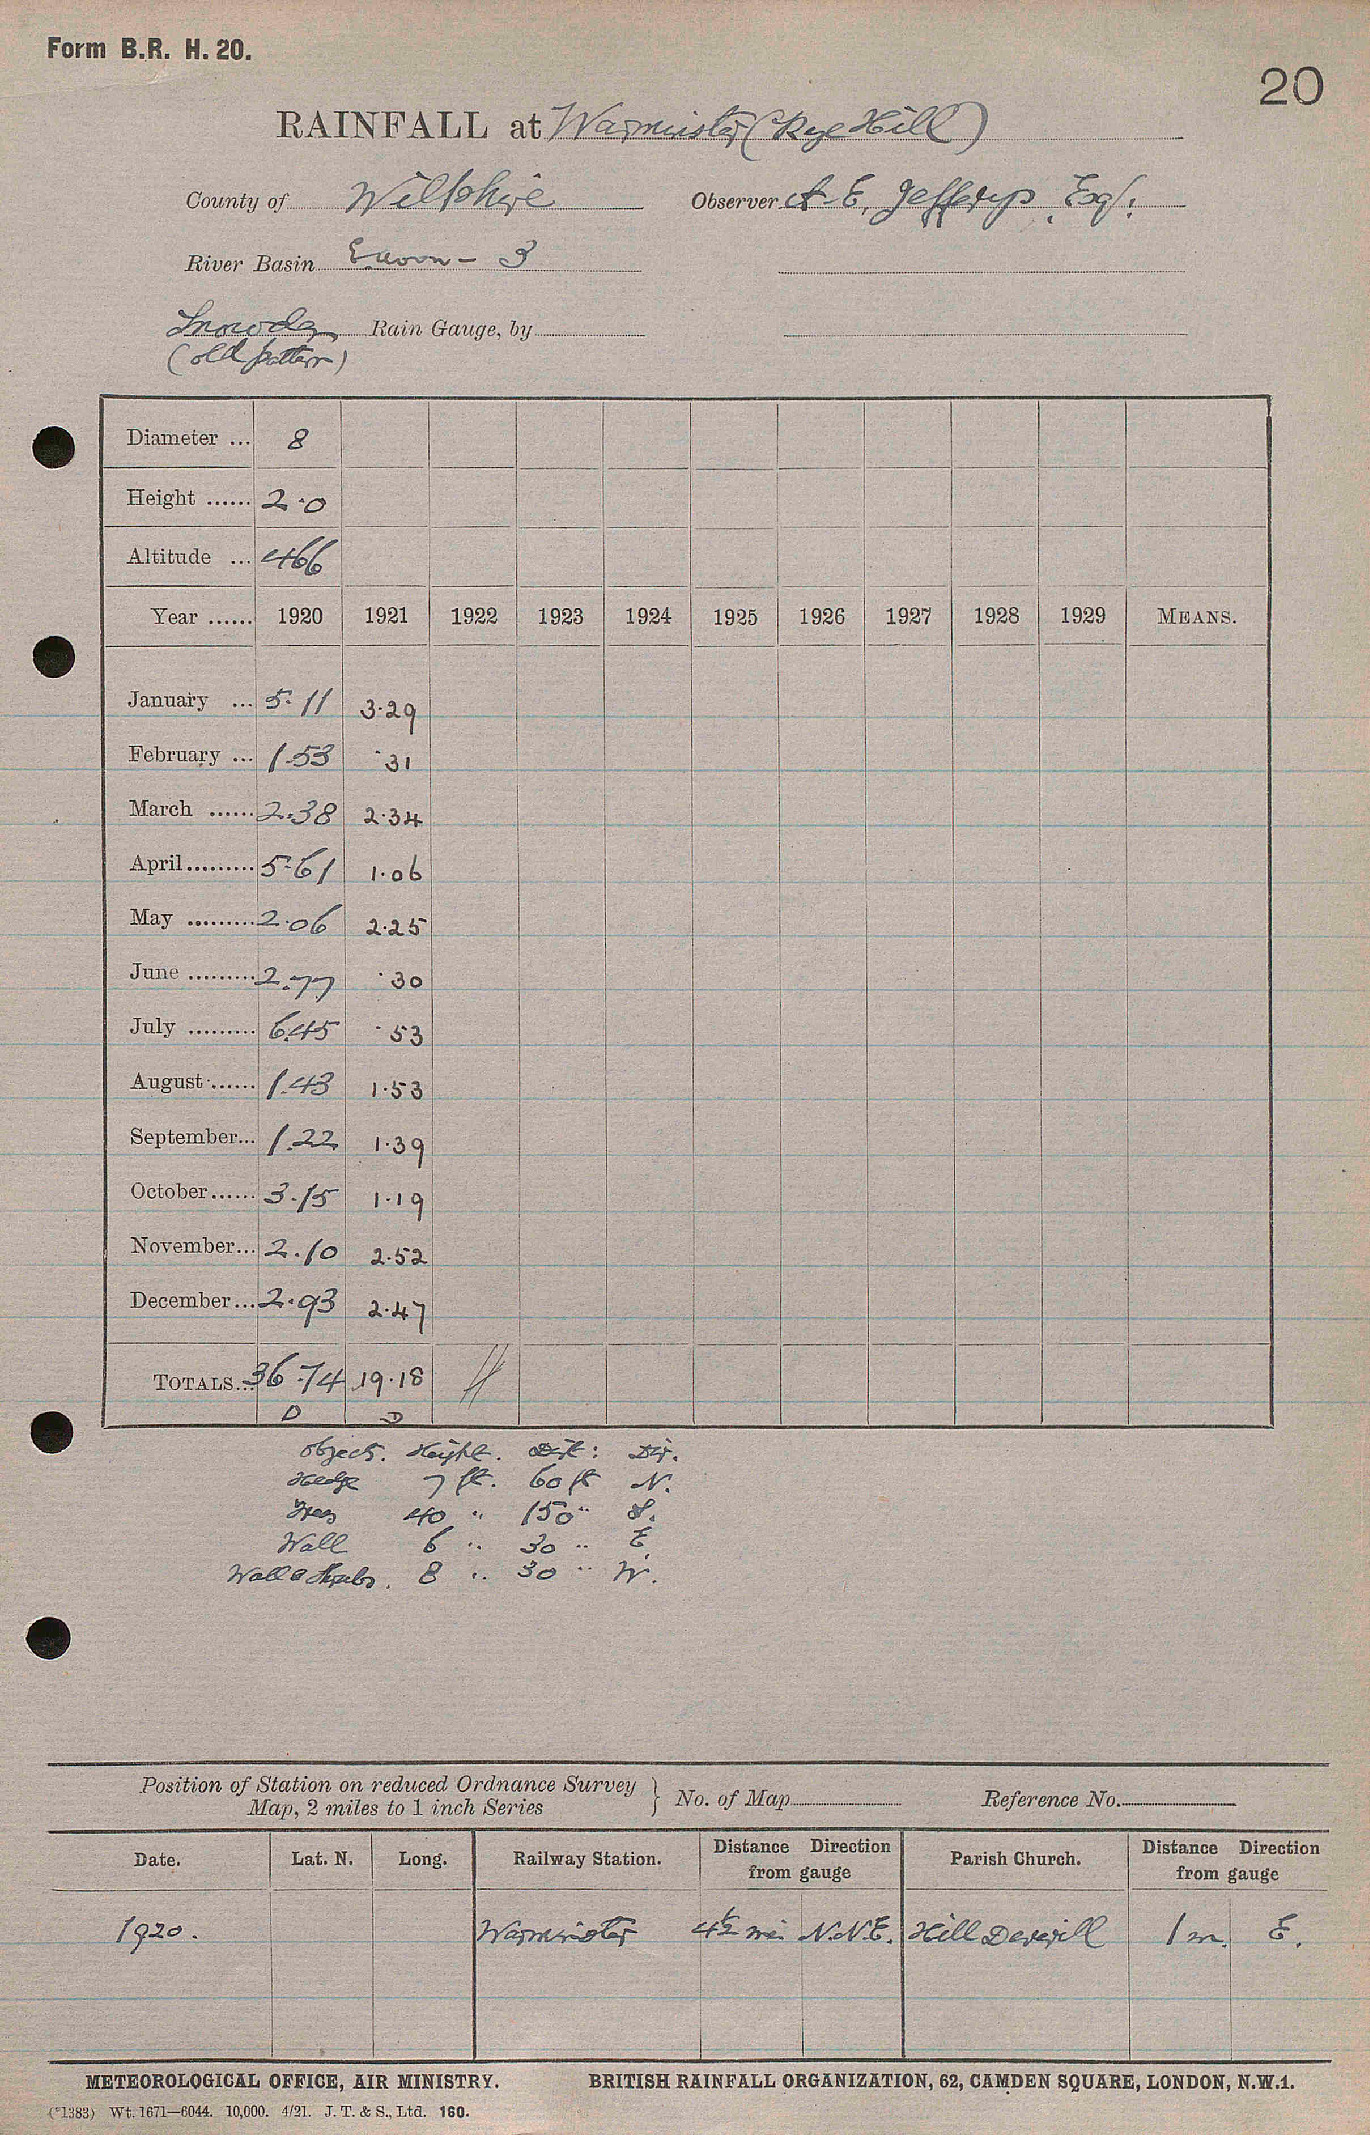 Form B.R. H. 20.
20
RAINFALL at Warminster (Rye Hill)
County of Wiltshire Observer A. E. Jefferys, Esq.
River Basin E. Avon - 3
Snowdon Rain Gauge, by
(old pattern)
Diameter ... 8
Height ...... 2.0
Altitude ... 466
Year ...... 1920 1921 1922 1923 1924 1925 1926 1927 1928 1929 MEANS.
January ... 5.11 3.29
February ... 1.53 .31
March ...... 2.38 2.34
April ......... 5.61 1.06
May ......... 2.06 2.25
June ......... 2.77 .30
July ......... 6.45 .53
August ...... 1.43 1.53
September... 1.22 1.39
October ...... 3.15 1.19
November... 2.10 2.52
December ... 2.93 2.47
TOTALS... 36.74 19.18 //
D D
Object. Height. Dist: Dir.
Hedge 7 ft. 60 ft N.
Trees 40 " 150 " S.
Wall 6 " 30 " E.
Wall & Shrubs. 8 " 30 " W.
Position of Station on reduced Ordnance Survey
Map, 2 miles to 1 inch Series } No. of Map Reference No.
Date. Lat. N. Long. Railway Station. Distance Direction from gauge Parish Church. Distance Direction from gauge
1920. Warminster 4½ mi N.N.E. Hill Deverill 1 m. E.
METEOROLOGICAL OFFICE, AIR MINISTRY. BRITISH RAINFALL ORGANIZATION, 62, CAMDEN SQUARE, LONDON, N.W.1.
(*1383) Wt. 1671—6044. 10,000. 4/21. J. T. & S., Ltd. 160.